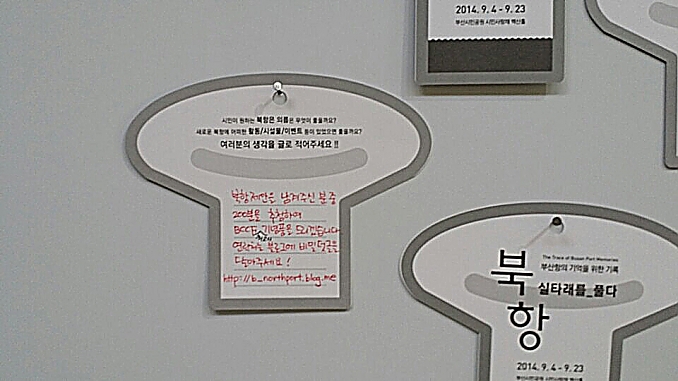 2014. 9. 4 - 9. 23
부산시민공원 시민사랑채 백산홀
시민이 원하는 북항은 의 름은 무엇이 좋을까요?
새로운 북항에 어떠한 활동/시설물/이벤트 등이 있었으면 좋을까요?
여러분의 생각을 글로 적어주세요 !!
북항제안은 남겨주신 분 중
200분을 추첨하여
BCCF 기념품을 드리겠습니다
연락처는 블로그에 비밀댓글을
달아주세요!
http://b_northport.blog.me
The Trace of Busan Port Memories
부산항의 기억을 위한 기록
실타래를_풀다
북항
2014. 9. 4 - 9. 23
부산시민공원 시민사랑채 백산홀